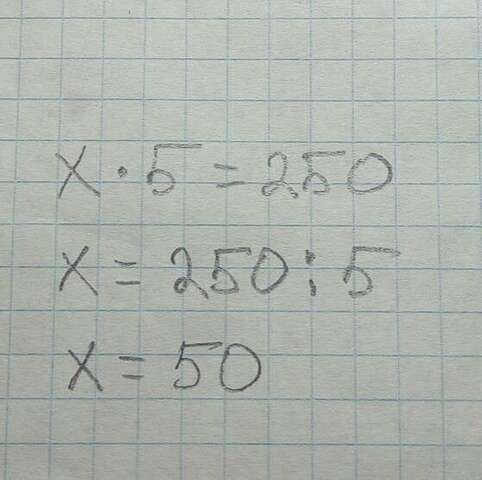 x · 5 = 250
x = 250 : 5
x = 50